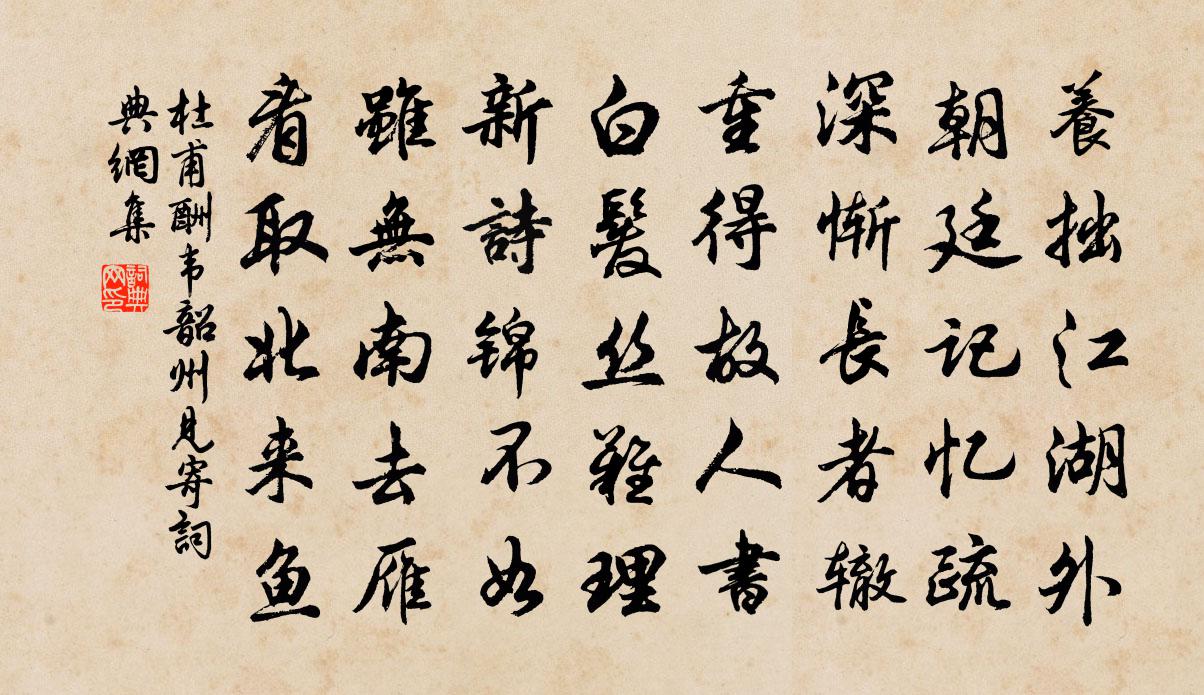 養拙江湖外
朝廷记忆疏
深慚長者辙
重得故人書
白髮丝難理
新詩锦不如
雖無南去雁
看取北来鱼
杜甫酬韦韶州見寄詞
典網集
詞典
网印